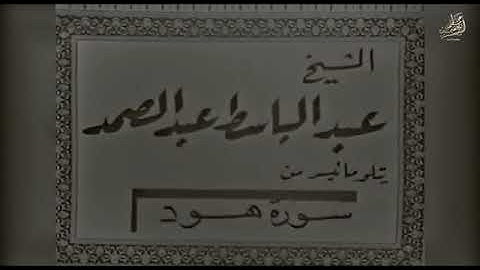 الشيخ
عبد الباسط عبد الصمد
يتلو ما تيسر من
سورة هود